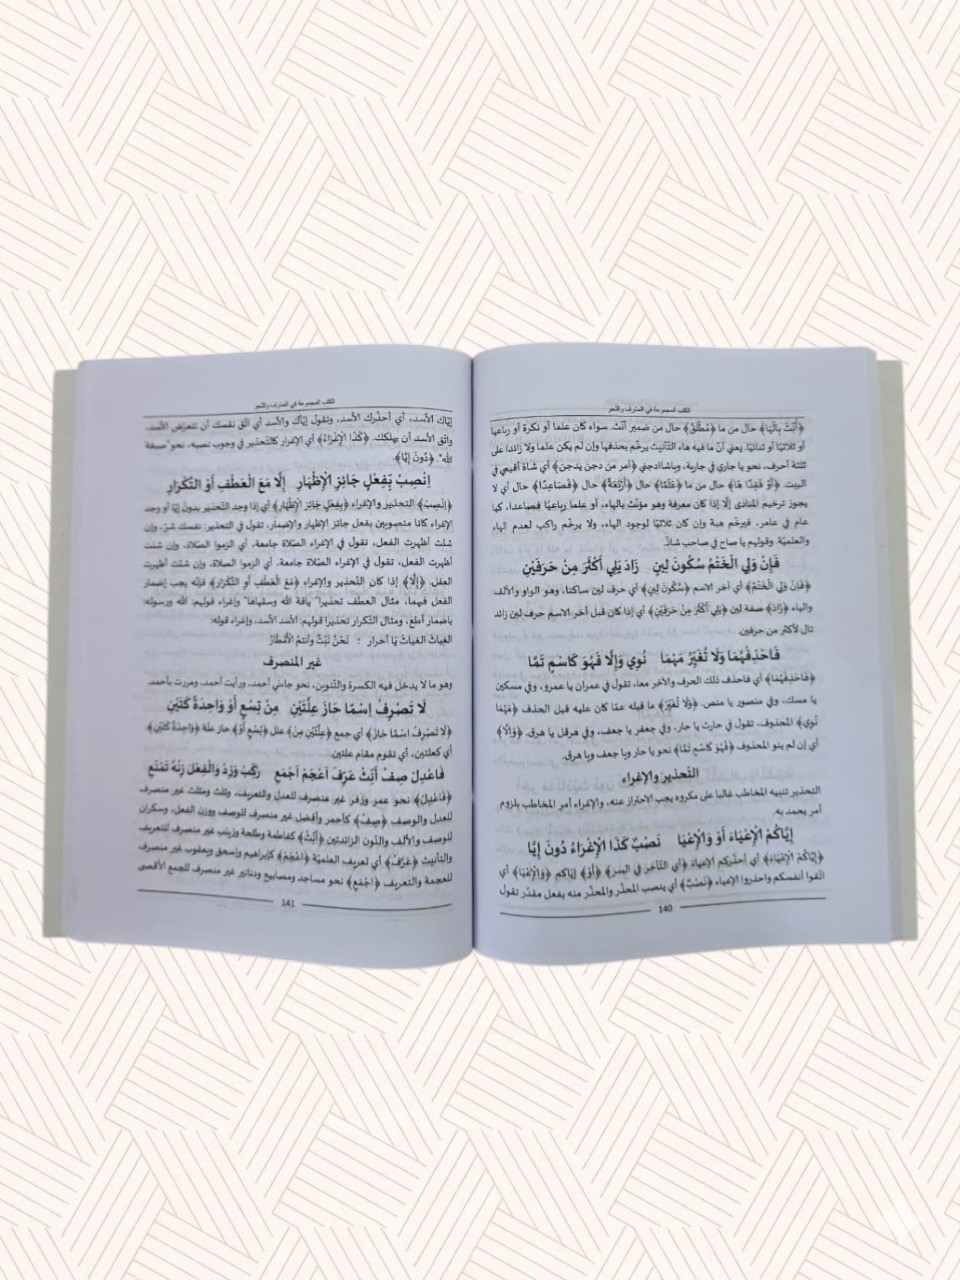 الكتب المجموعة في الصارف والنحو
﴿أُنِّثَ بِالْهَا﴾ حال من ما ﴿مُطْلَقٌ﴾ حال من ضمير أنّث. سواء كان علما أو نكرة أو رباعيا
أو ثلاثيّا أو ثنائيّا. يعني أنّ ما فيه هاء التّأنيث يرخّم بحذفها وإن لم يكن علما ولا زائدا على
ثلثة أحرف، نحو يا جاري في جارية، وياشاادجني ﴿أمر من دجن يدجن﴾ أي شاة أقيمي في
البيت ﴿أَوْ فَقِدَا هَا﴾ حال من ما ﴿عَلَمًا﴾ حال ﴿أَرْبَعَةً﴾ حال ﴿فَصَاعِدًا﴾ حال أي لا
يجوز ترخيم المنادى إلّا إذا كان معرفة وهو مؤنّث بالهاء، أو علما رباعيّا فصاعدا، كيا
عام في عامر، فيرخّم هبة وإن كان ثلاثيّا لوجود الهاء، ولا يرخّم راكب لعدم الهاء
والعلميّة وقولهم يا صاح في صاحب شاذّ.
فَإِنْ وَلِي الْخَتْمُ سُكُونَ لِينٍ زَادَ يَلِي أَكْثَرَ مِنْ حَرْفَيْنِ
﴿فَإِنْ وَلِي الْخَتْمُ﴾ أي آخر الاسم ﴿سُكُونَ لِينٍ﴾ أي حرف لين ساكنا، وهو الواو والألف
والياء ﴿زَادَ﴾ صفة لين ﴿يَلِي أَكْثَرَ مِنْ حَرْفَيْنِ﴾ أي إذا كان قبل آخر الاسم حرف لين زائد
تال لأكثر من حرفين.
فَاحْذِفْهُمَا وَلَا تُغَيِّرُ مَهْمَا نُوِي وَإِلَّا فَهُوَ كَاسْمٍ تَمَّا
﴿فَاحْذِفْهُمَا﴾ أي فاحذف ذلك الحرف والآخر معا، تقول في عمران يا عمرو، وفي مسكين
يا مسك، وفي منصور يا منص. ﴿وَلَا تُغَيِّرُ﴾ ما قبله عمّا كان عليه قبل الحذف ﴿مَهْمَا
نُوِي﴾ المحذوف، تقول في حارث يا حار، وفي جعفر يا جعف، وفي هرقل يا هرق. ﴿وَإِلَّا﴾
أي إن لم ينو المحذوف ﴿فَهُوَ كَاسْمٍ تَمَّا﴾ نحو يا حار ويا جعف ويا هرق.
التّحذير والإغراء
التّحذير تنبيه المخاطب غالبا على مكروه يجب الاحتراز عنه، والإغراء أمر المخاطب بلزوم
أمر يحمد به.
إِيَّاكُمُ الْإِعْيَاءَ أَوْ وَالْإِعْيَا نَصْبٌ كَذَا الْإِغْرَاءُ دُونَ إِيَّا
﴿إِيَّاكُمُ الْإِعْيَاءَ﴾ أي أحذّركم الإعياء ﴿أي التّأخّر في السير﴾ ﴿أَوْ﴾ إيّاكم ﴿وَالْإِعْيَا﴾ أي
اتّقوا أنفسكم واحذروا الإعياء ﴿نَصْبٌ﴾ أي ينصب المحذّر والمحذّر منه بفعل مقدّر تقول
140
الكتب المجموعة في الصارف والنحو
إيّاك الأسد، أي أحذّرك الأسد، وتقول إيّاك والأسد أي اتّق نفسك أن تتعرّض الأسد،
واتّق الأسد أن يهلكك. ﴿كَذَا الْإِغْرَاءُ﴾ أي الإغرار كالتّحذير في وجوب نصبه، نحو"صبغة
الله". ﴿دُونَ إِيَّا﴾.
اِنْصِبْ بِفِعْلٍ جَائِزِ الْإِظْهَارِ إِلَّا مَعَ الْعَطْفِ أَوْ التَّكْرَارِ
﴿اِنْصِبْ﴾ التّحذير والإغراء ﴿بِفِعْلٍ جَائِزِ الْإِظْهَارِ﴾ أي إذا وجد التّحذير بدون إيّا أو وجد
الإغراء كانا منصوبين بفعل جائز الإظهار والإضمار، تقول في التحذير: نفسك شرّ، وإن
شئت أظهرت الفعل، تقول في الإغراء الصّلاة جامعة، أي الزموا الصّلاة، وإن شئت
أظهرت الفعل، تقول في الإغراء الصّلاة جامعة، أي الزموا الصلاة. وإن شئت أظهرت
العفل. ﴿إِلَّا﴾ إذا كان التّحذير والإغراء ﴿مَعَ الْعَطْفِ أَوِ التَّكْرَارِ﴾ فإنّه يجب إضمار
الفعل فيهما، مثال العطف تحذيرا" ناقة الله وسقياها" وإغراء قولهم: الله ورسوله:
بإضمار أطع، ومثال التّكرار تحذيرا قولهم: الأسد الأسد، وإغراء قوله:
الغياث الغياث يا أحرار : نَحْنُ نَبْتٌ وأنتمُ الْأَمْطَارُ
غير المنصرف
وهو ما لا يدخل فيه الكسرة والتّنوين، نحو جاءني أحمد، ورأيت أحمد، ومررت بأحمد.
لَا تَصْرِفُ اِسْمًا حَازَ عِلَّتَيْنِ مِنْ تِسْعٍ أَوْ وَاحِدَةً كَتَيْنِ
﴿لَا تَصْرِفُ اِسْمًا حَازَ﴾ أي جمع ﴿عِلَّتَيْنِ مِنْ﴾ علل ﴿تِسْعٍ أَوْ﴾ حاز علّة ﴿وَاحِدَةً كَتَيْنِ﴾
أي كعلتين، أي تقوم مقام علتين.
فَاعْدِلْ صِفْ أَنِّثْ عَرِّفْ اَعْجِمْ اَجْمَعِ رَكِّبْ وَزِدْ وَالْفِعْلَ زِنْهُ تَمْنَعِ
﴿فَاعْدِلْ﴾ نحو عمر وزفر غير منصرف للعدل والتعريف، وثلث ومثلث غير منصرف
للعدل والوصف ﴿صِفْ﴾ كأحمر وأفضل غير منصرف للوصف ووزن الفعل، وسكران
للوصف والألف والنّون الزائدتين ﴿أَنِّثْ﴾ كفاطمة وطلحة وزينب غير منصرف للتعريف
والتأنيث ﴿عَرِّفْ﴾ أي تعريف العلميّة ﴿اَعْجِمْ﴾ كإبراهيم وإسحق ويعقوب غير منصرف
للعجمة والتعريف ﴿اجْمَعِ﴾ نحو مساجد ومصابيح ودنانير غير منصرف للجمع الأقصى
141